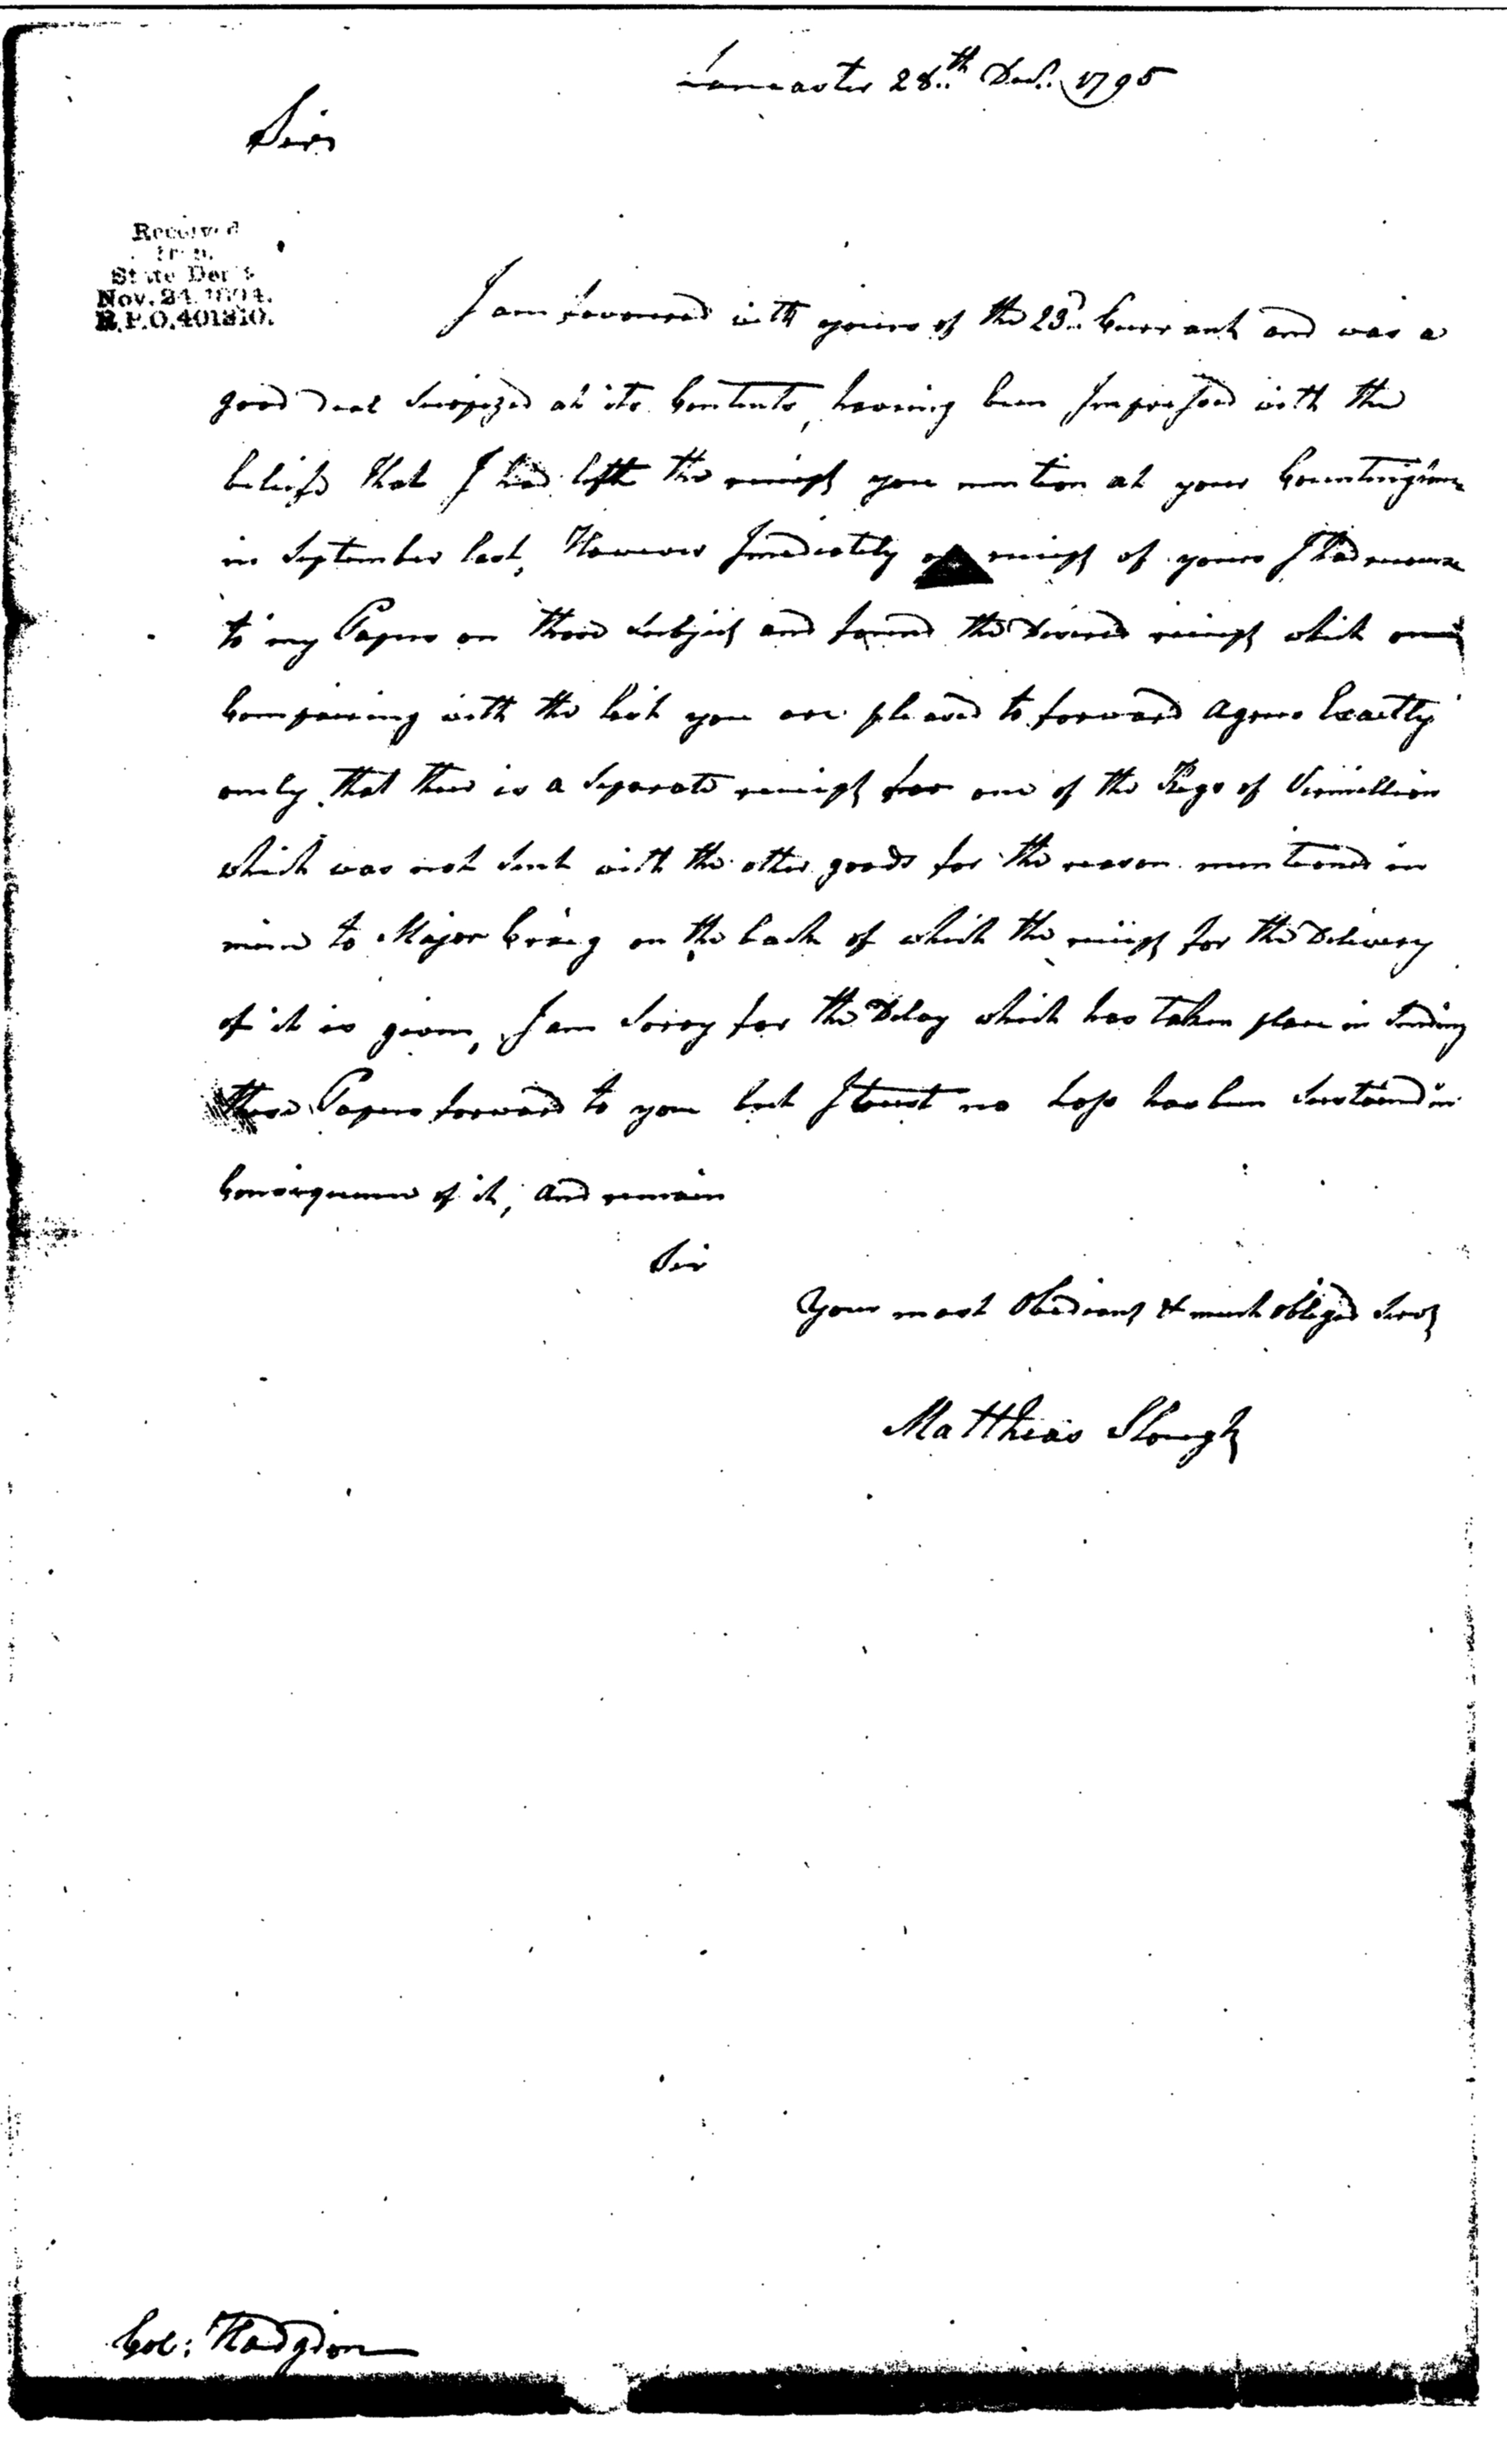 Lancaster 28th Decr. 1795
Sir
Received
from
State Dept
Nov. 24. 1894.
R.P.O. 401810.
I am favoured with yours of the 23d. Currant and was a
good deal Surprized at its Contents, having been Impressed with the
beliefe that I had left the receipt you mention at your Countinghouse
in September last, However Imediatily on receipt of yours I had recourse
to my Papers on those Subject and found the Desired receipt which on
Compairing with the List you are pleased to forward Agrees Exactly
only that there is a Separate receipt for one of the Kegs of Virmillion
which was not Sent with the other goods for the reason mentioned in
mine to Major Craig on the back of which the receipt for the Delivery
of it is given, I am Sorry for the Delay which has taken place in Sending
these Papers forward to you but I trust no Loss has been Sustained in
Consequence of it, and remain
Sir
Your most Obedient & much obliged Servt
Matthias Slough
Col: Hodgdon